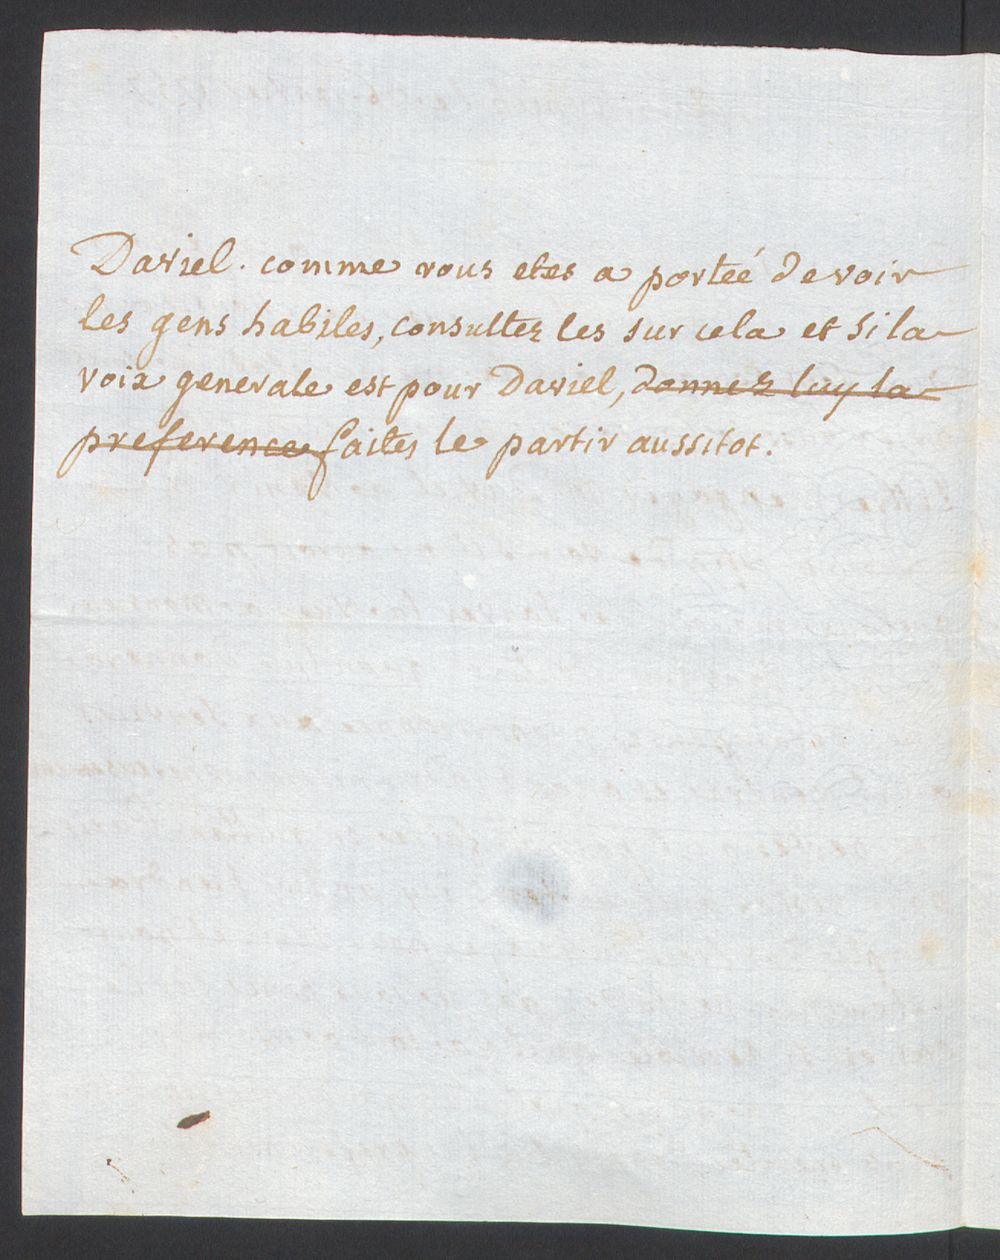 Daviel. comme vous etes a porteé de voir
les gens habiles, consultez les sur cela et si la
voix generale est pour Daviel, donnez luy la
preference faites le partir aussitot.